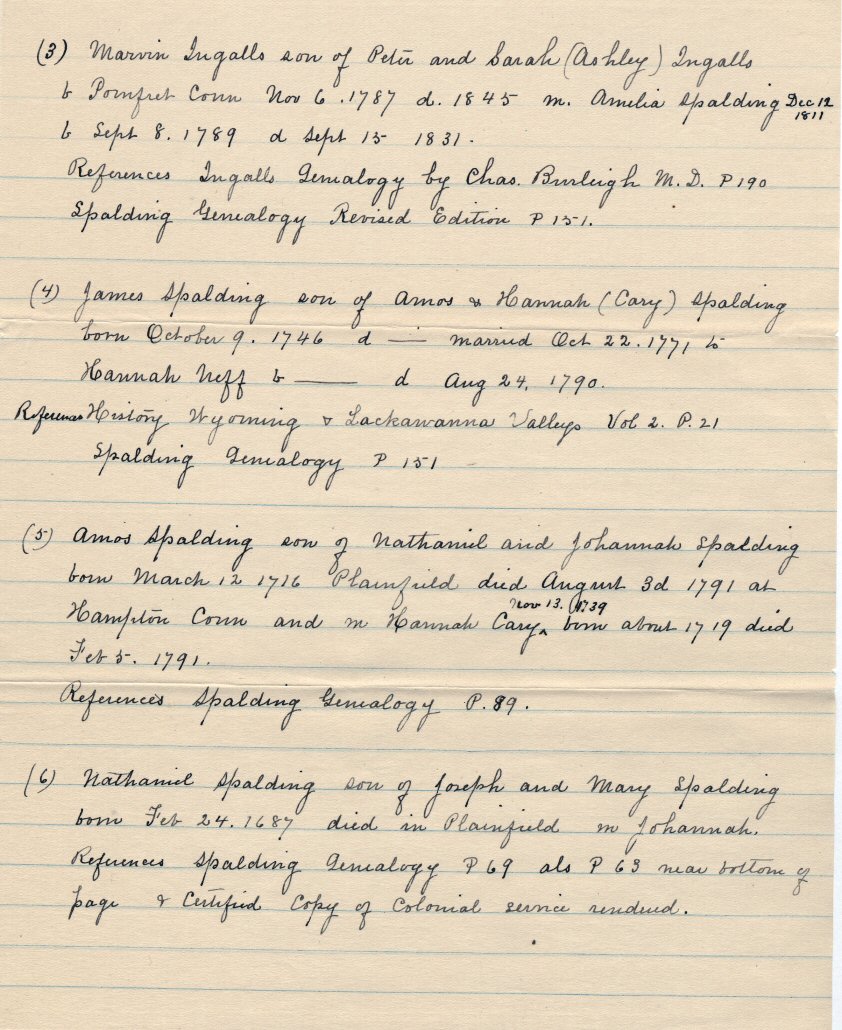 (3) Marvin Ingalls son of Peter and Sarah (Ashley) Ingalls
b Pomfret Conn Nov 6. 1787 d. 1845 m. Amelia Spalding Dec 12 1811
b Sept 8. 1789 d Sept 15 1831.
References Ingalls Genealogy by Chas. Burleigh M.D. P 190
Spalding Genealogy Revised Edition P 151.
(4) James Spalding son of Amos & Hannah (Cary) Spalding
born October 9. 1746 d — married Oct 22. 1771 to
Hannah Neff b —— d Aug 24, 1790.
References History Wyoming & Lackawanna Valleys Vol 2. P. 21
Spalding Genealogy P 151
(5) Amos Spalding son of Nathaniel and Johannah Spalding
born March 12 1716 Plainfield died August 3d 1791 at
Nov 13. 1739
Hampton Conn and m Hannah Cary^ born about 1719 died
Feb 5. 1791.
References Spalding Genealogy P. 89.
(6) Nathaniel Spalding son of Joseph and Mary Spalding
born Feb 24. 1687 died in Plainfield m Johannah.
References Spalding Genealogy P 69 als P 63 near bottom of
page & Certified Copy of Colonial service rendered.